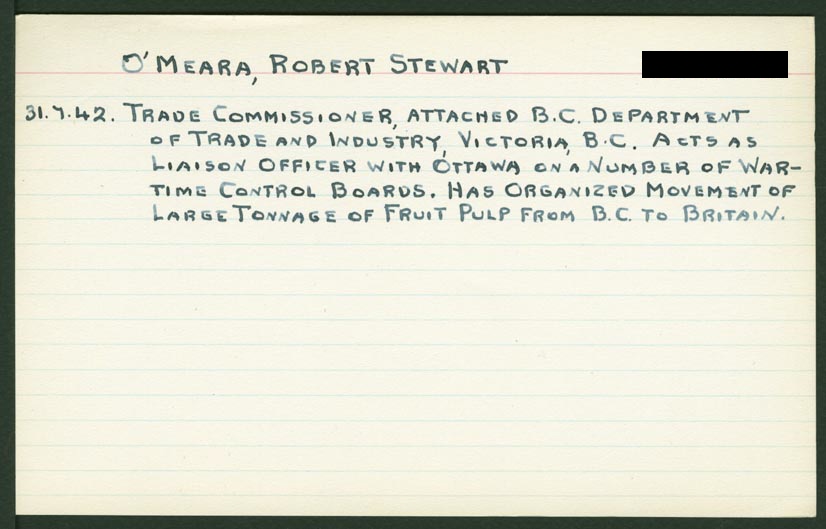 O'MEARA, ROBERT STEWART
31.7.42. TRADE COMMISSIONER, ATTACHED B.C. DEPARTMENT
OF TRADE AND INDUSTRY, VICTORIA, B.C. ACTS AS
LIAISON OFFICER WITH OTTAWA ON A NUMBER OF WAR-
TIME CONTROL BOARDS. HAS ORGANIZED MOVEMENT OF
LARGE TONNAGE OF FRUIT PULP FROM B.C. TO BRITAIN.